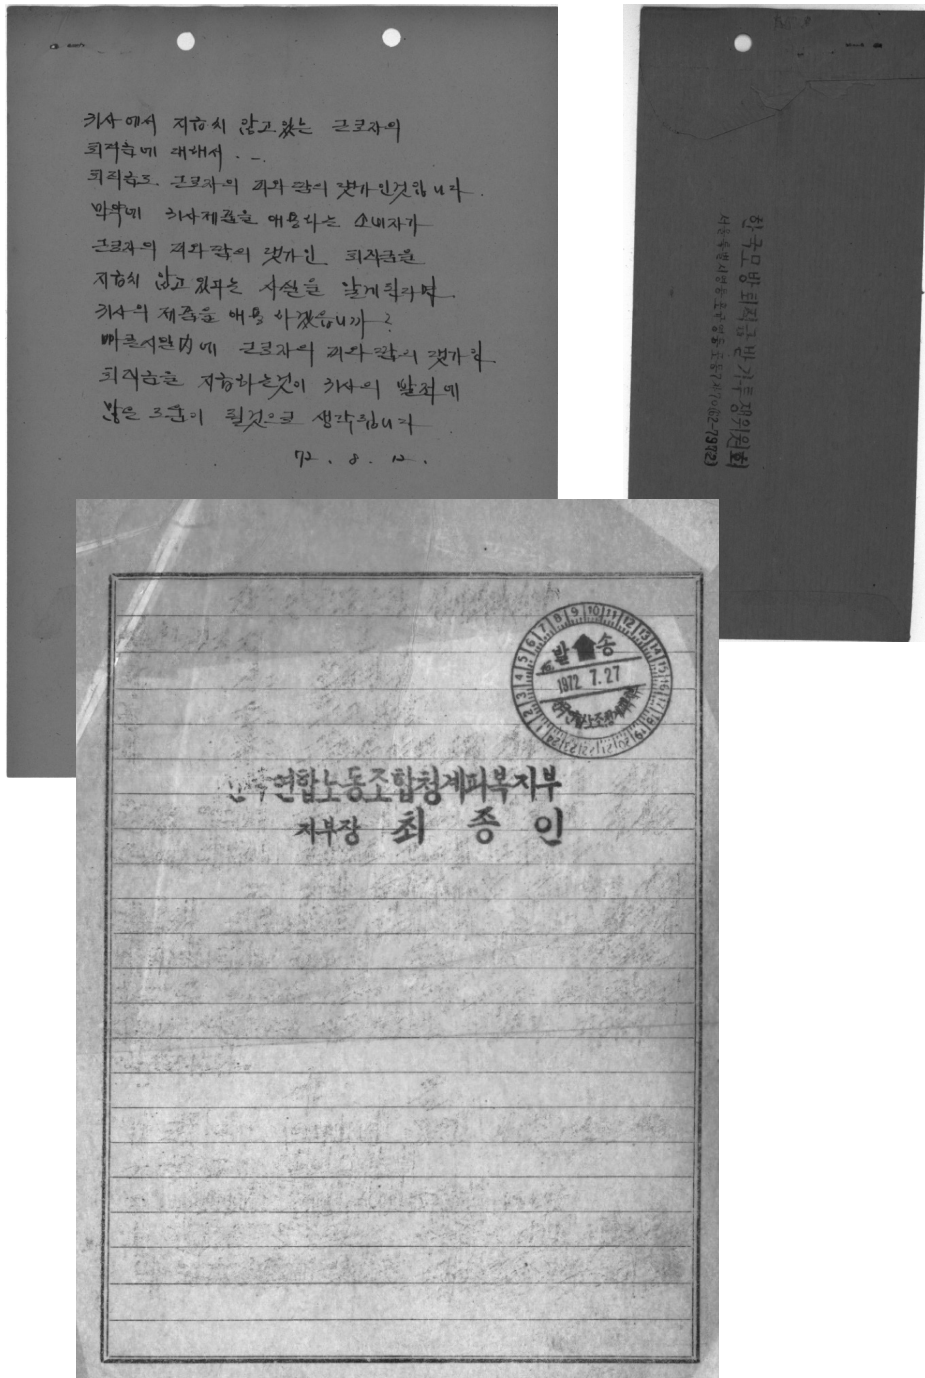 귀사에서 지급치 않고 있는 근로자의
퇴직금에 대해서 . - .
퇴직금도 근로자의 피와 땀의 댓가인것입니다.
만약에 귀사제품을 애용하는 소비자가
근로자의 피와 땀의 댓가인 퇴직금을
지급치 않고 있다는 사실을 알게된다면
귀사의 제품을 애용 하겠읍니까?
빠른시일內에 근로자의 피와 땀의 댓가인
퇴직금을 지급하는것이 귀사의 발전에
많은 도움이 될것으로 생각됩니다
72. 8. 12.
한국모방퇴직금받기투쟁위원회
서울특별시영등포구영등포동
62-7972)
발송
1972 7.27
연합노동조합청계피복지부
지부장 최종인